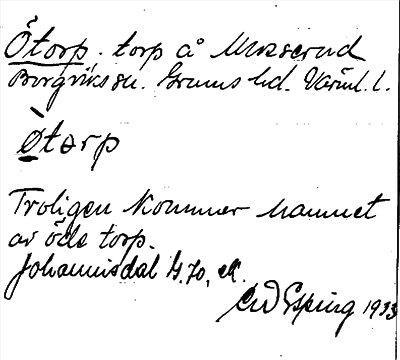 Ötorp. torp å Mosserud
Borgviks sn. Grums hd. Värml. l.
Òtorp
Troligen kommer namnet
av öde torp.
Johannisdal
CW Esping 1933